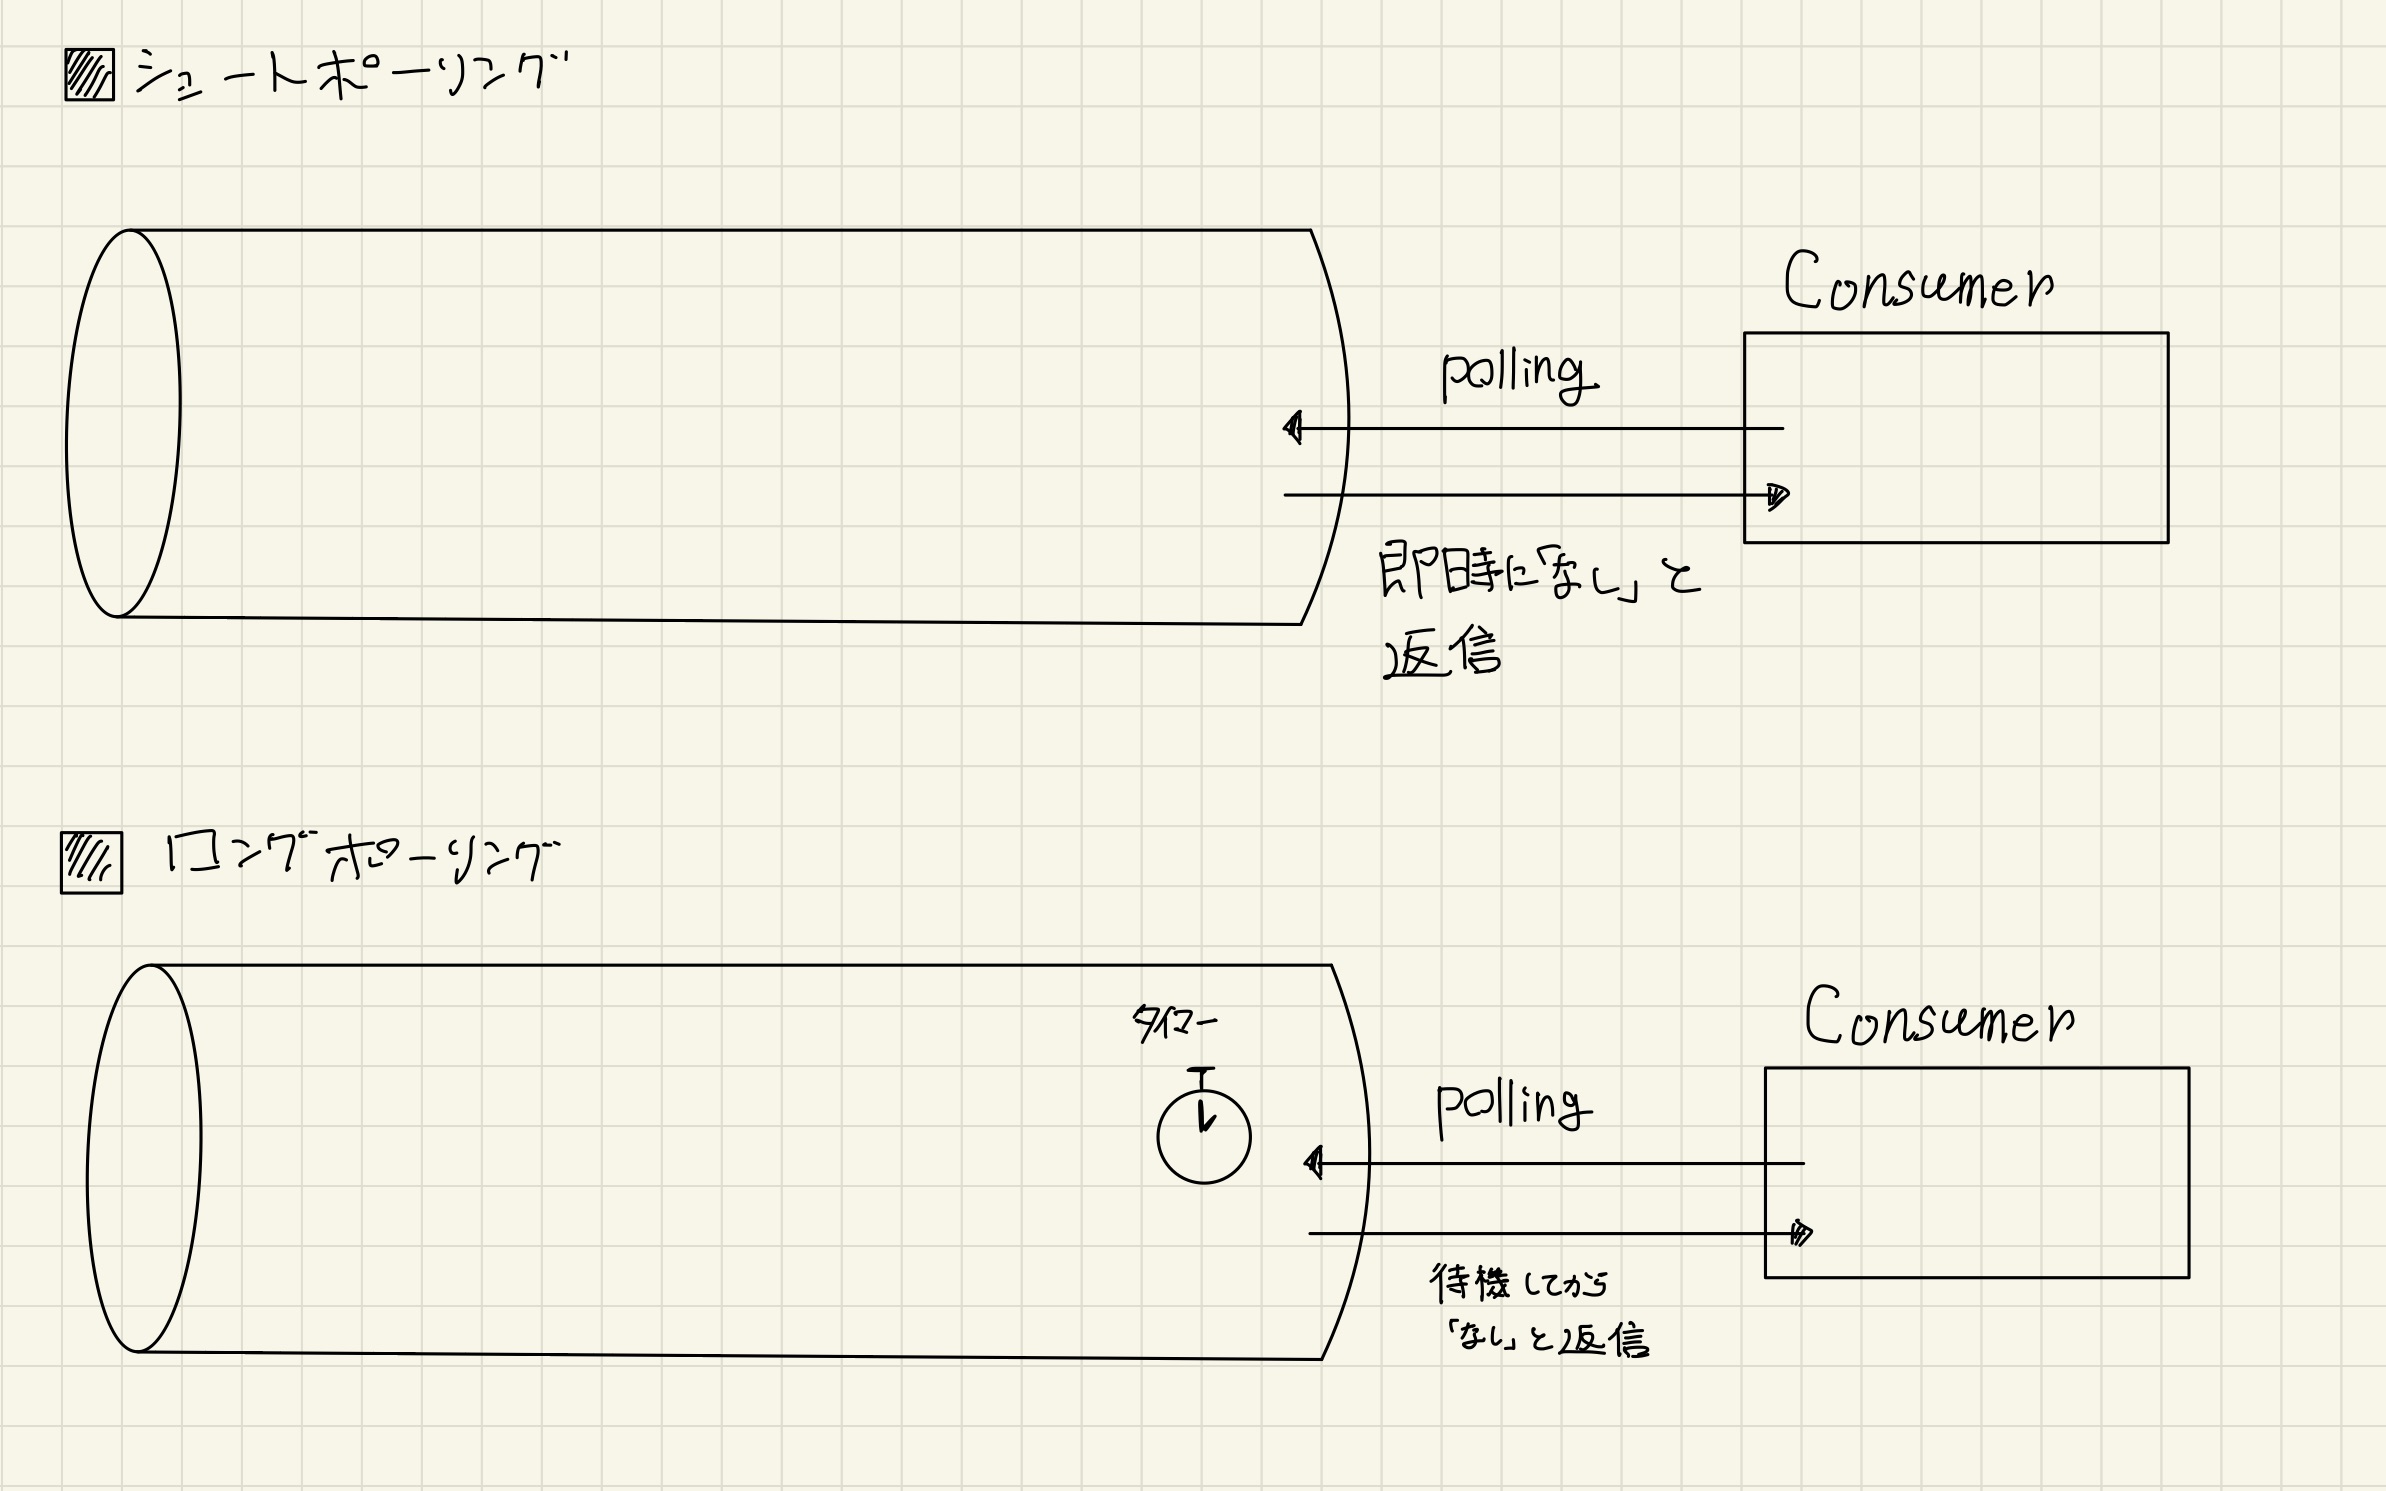 シュートポーリング
Consumer
polling
即時に「なし」と
返信
ロングポーリング
タイマー
Consumer
polling
待機してから
「なし」と返信